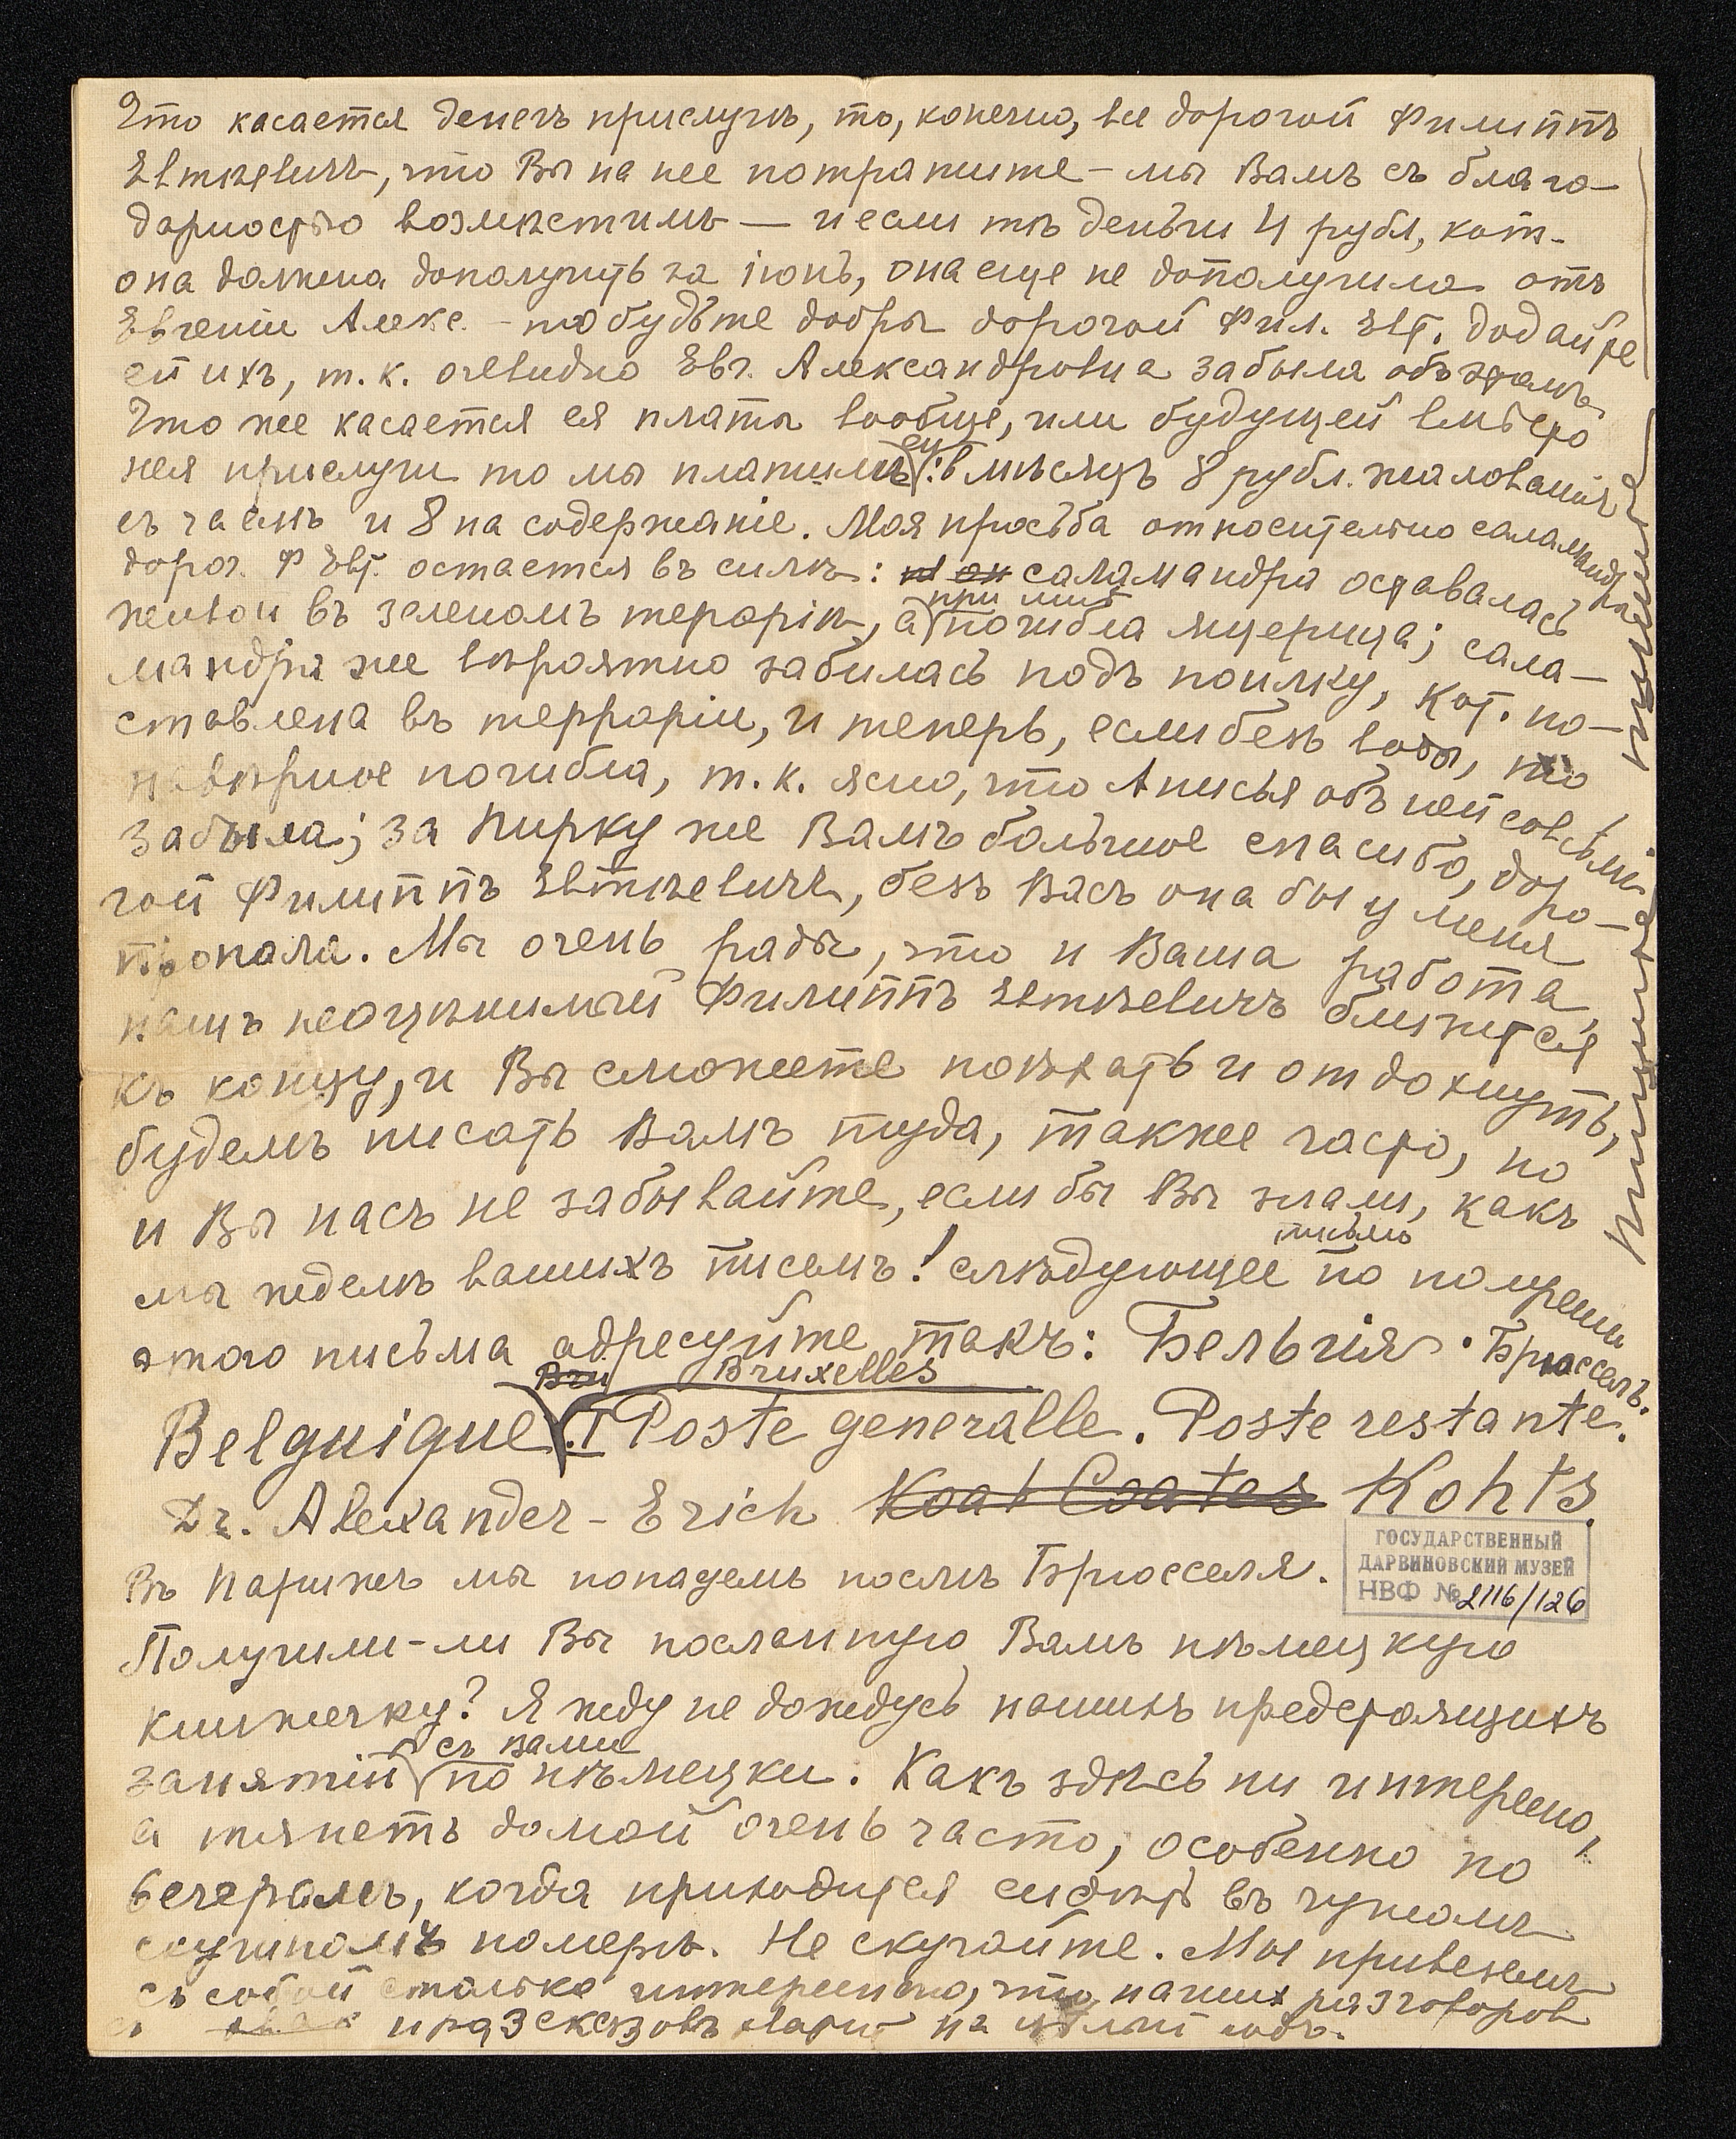 Что касается денегъ прислугѣ, то, конечно, все дорогой Филиппъ
Евтѣевичъ, что Вы на нее потратите – мы Вамъ съ благо-
дарностью возмѣстимъ — и если тѣ деньги 4 рубл, кот.
она должна дополучить за іюнь, она еще не дополучила отъ
Евгеніи Алекс. – то будьте добры дорогой Фил. Евт. додайте
ей ихъ, т.к. очевидно Евг. Александровна забыла объ этомъ.
Что же касается ея платы вообще, или будущей вмѣсто
нея прислуги то мы платимъ ей: въ мѣсяцъ 8 рубл. жалованія
съ чаемъ и 8 на содержаніе. Моя просьба относительно саламандры
дорог. Ф Евт. остается въ силѣ: саламандра оставалась
живой въ зеленомъ терарів, а при мнѣ погибла ящерица; сала-
мандра же вѣроятно забилась подъ поилку, кот. по-
ставлена въ террарiи, и теперь, если безъ воды, то
навѣрное погибла, т.к. ясно, что Анисья объ ней совсѣмъ
забыла; за Пирку же Вамъ большое спасибо, доро-
гой Филиппъ Евтѣевичъ, безъ Васъ она бы у меня
пропала. Мы очень рады, что и Ваша работа,
нашъ неоцѣнимый Филиппъ Евтѣевичъ близится
къ концу, и Вы сможете поѣхать и отдохнуть,
будемъ писать Вамъ туда, также часто, но
и Вы насъ не забывайте, если бы Вы знали, какъ
мы ждемъ вашихъ писемъ! слѣдующее письмо по полученіи
этого письма адресуйте такъ: Бельгія. Брюссель.
Belguique. Bruxelles I Poste generalle. Poste restante.
Dr. Alexander – Erich Koat Coates Kohts.
Въ Парижъ мы попадемъ послѣ Брюсселя.
ГОСУДАРСТВЕННЫЙ
ДАРВИНОВСКИЙ МУЗЕЙ
НВФ № 2116/126
Получили-ли Вы посланную Вамъ нѣмецкую
книжечку? Я жду не дождусь нашихъ предстоящихъ
занятій съ вами по нѣмецки. Какъ здѣсь ни интересно,
а тянетъ домой очень часто, особенно по
вечерамъ, когда приходится сидѣть въ чужомъ
скучномъ номерѣ. Не скучайте. Мы привеземъ
съ собой столько интереснаго, что нашихъ разговоров
и разсказовъ на цѣлый годъ.
Пишите пишите